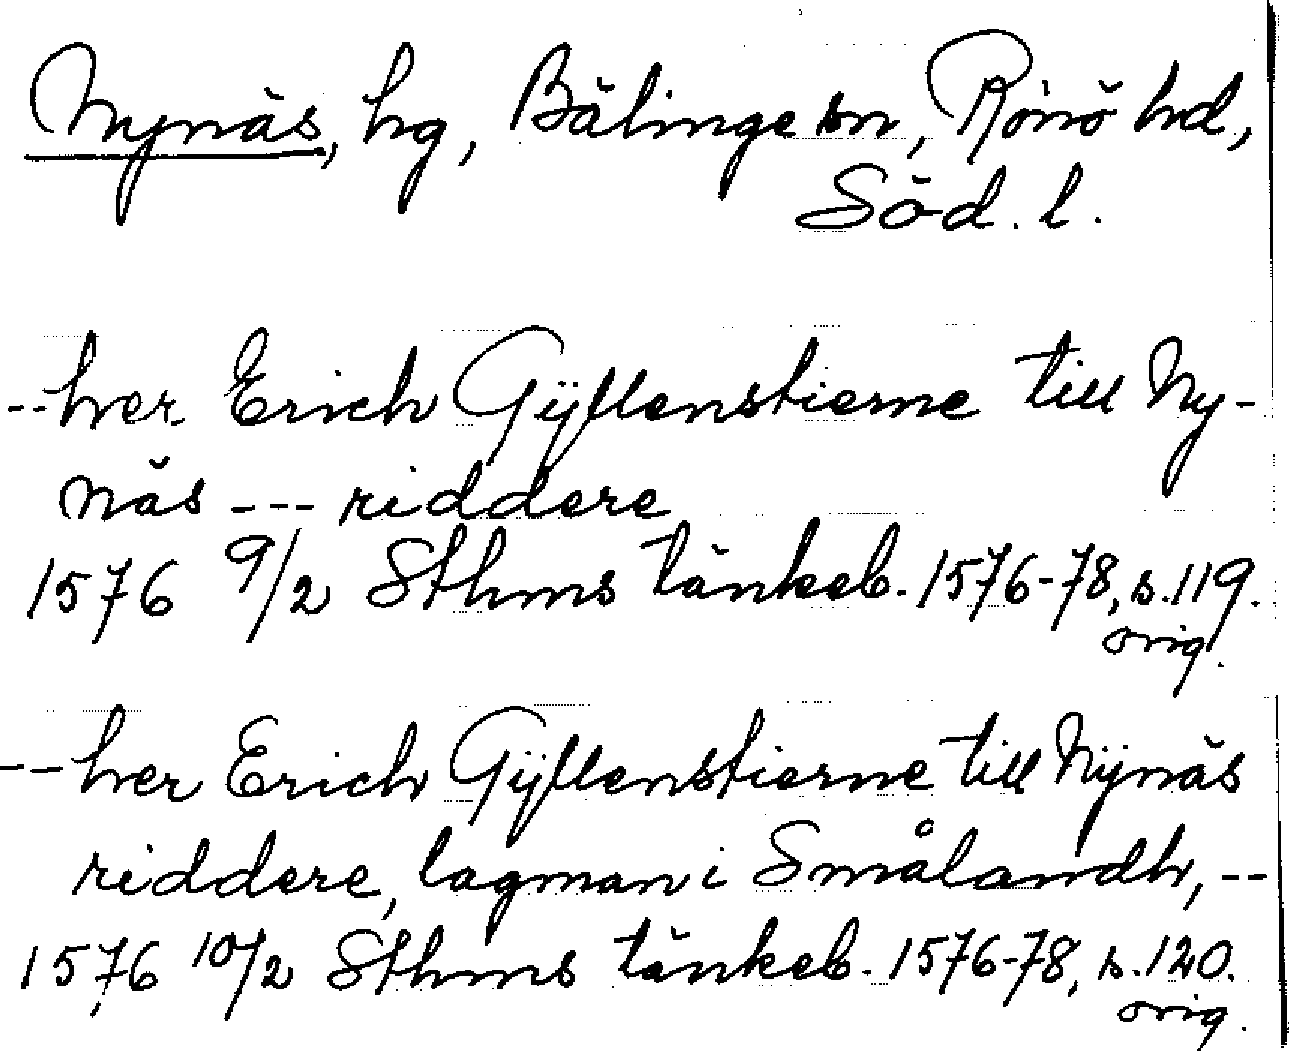 Nynäs, hg, Bälinge sn, Rönö hd,
Söd. l.
-- her Erich Gÿllenstierne till Ny-
näs --- riddere
1576 9/2 Sthms tänkeb. 1576-78, s. 119.
orig.
-- her Erich Gÿllenstierne till Nÿnäs
riddere, lagman i Smålandh, --
1576 10/2 Sthms tänkeb. 1576-78, s. 120.
orig.